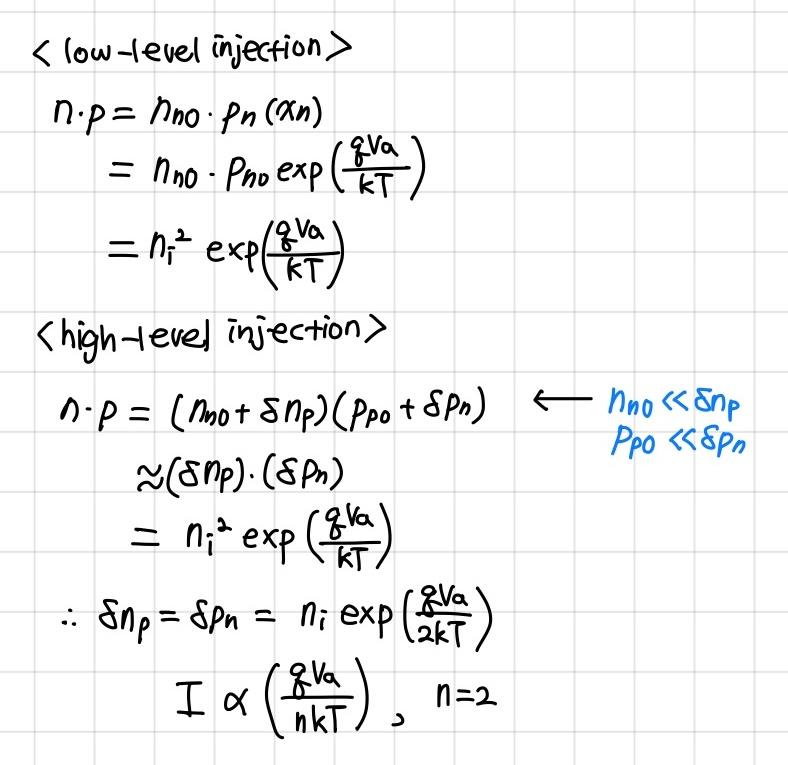 < low-level injection >
n·p = n_{n0} · p_n (x_n)
= n_{n0} · p_{n0} exp(qVa/kT)
= n_i² exp(qVa/kT)
< high-level injection >
n·p = (n_{n0} + δn_p)(p_{p0} + δp_n) ← n_{n0} << δn_p
p_{p0} << δp_n
≈ (δn_p)·(δp_n)
= n_i² exp(qVa/kT)
∴ δn_p = δp_n = n_i exp(qVa/2kT)
I ∝ (qVa/nkT), n=2